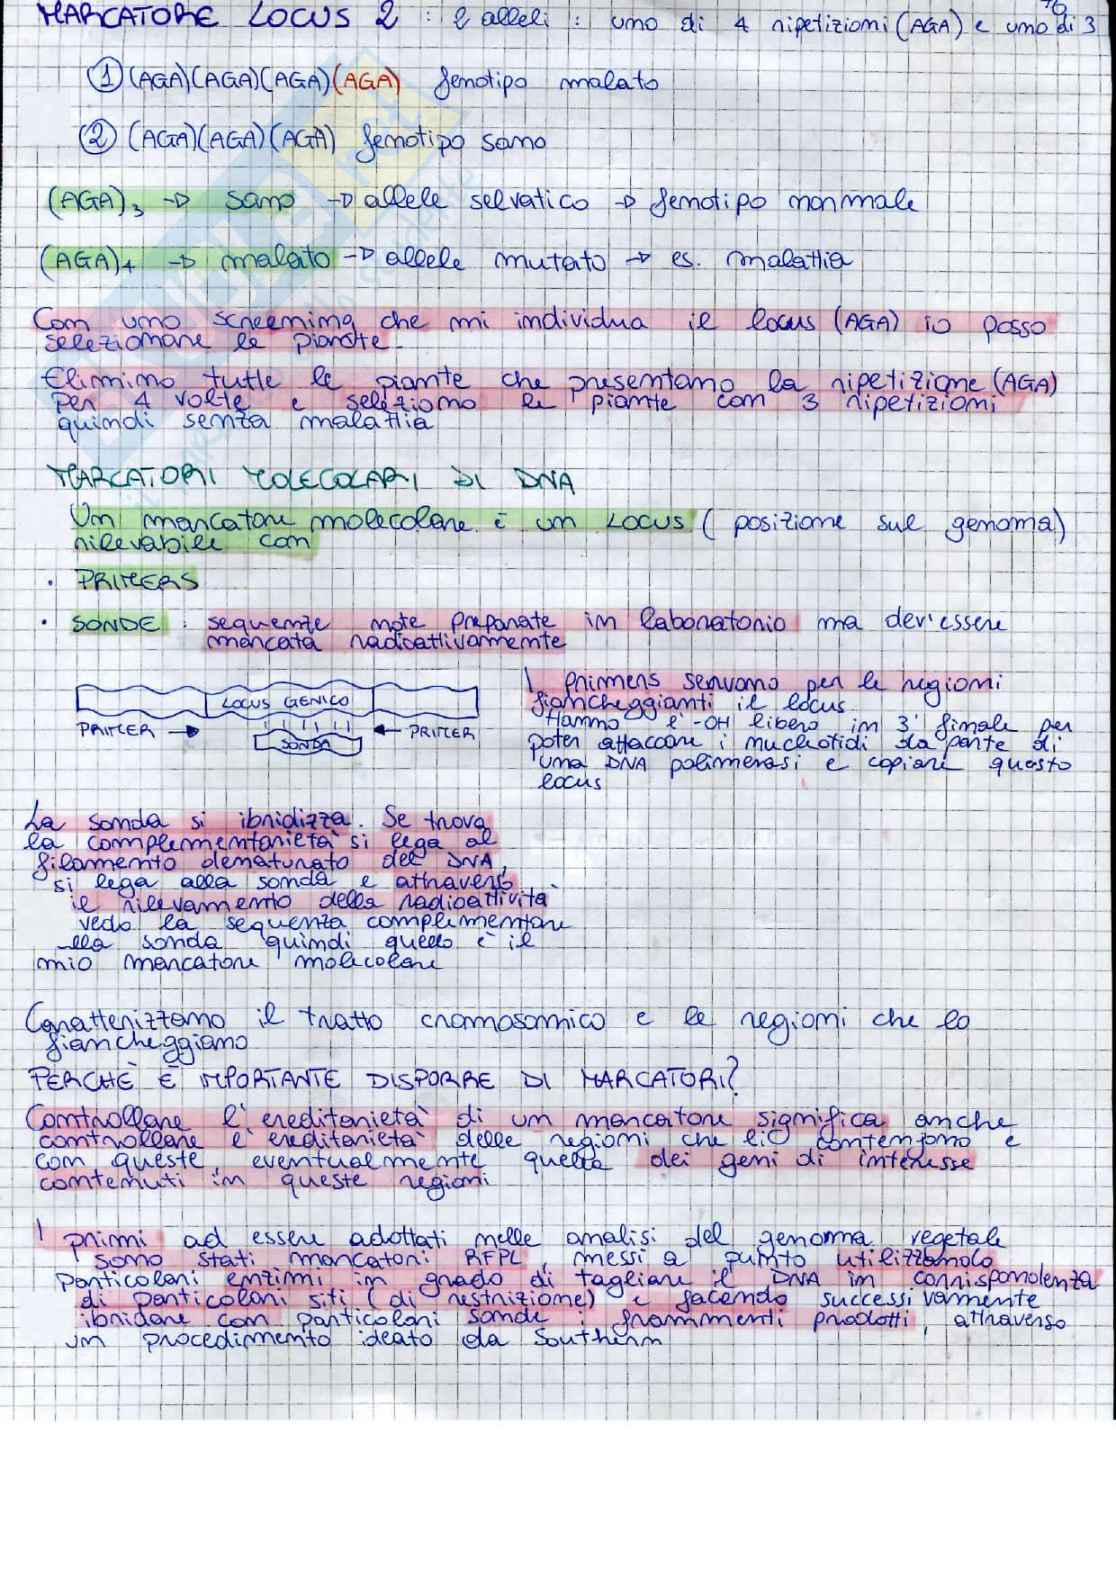 MARCATORE LOCUS 2 : 2 alleli : uno di 4 ripetizioni (AGA) e uno di 3
① (AGA)(AGA)(AGA)(AGA) fenotipo malato
② (AGA)(AGA)(AGA) fenotipo sano
(AGA)₃ → sano → allele selvatico → fenotipo normale
(AGA)₄ → malato → allele mutato → es. malattia
Con uno screening che mi individua il locus (AGA) io posso
selezionare le piante.
Elimino tutte le piante che presentano la ripetizione (AGA)
per 4 volte e seleziono le piante con 3 ripetizioni
quindi senza malattia
MARCATORI MOLECOLARI DI DNA
Un marcatore molecolare è un LOCUS ( posizione sul genoma)
rilevabile con
· PRIMERS
· SONDE : sequenze note preparate in laboratorio ma dev'essere
marcata radioattivamente
I primers servono per le regioni
fiancheggianti il locus.
Hanno l'-OH libero in 3' finale per
poter attaccare i nucleotidi da parte di
una DNA polimerasi e copiare questo
locus
LOCUS GENICO
PRIMER → SONDA ← PRIMER
La sonda si ibridizza. Se trova
la complementarietà si lega al
filamento denaturato del DNA,
si lega alla sonda e attraverso
il rilevamento della radioattività
vedo la sequenza complementare
alla sonda quindi quello è il
mio marcatore molecolare
Caratterizzano il tratto cromosomico e le regioni che lo
fiancheggiano
PERCHÈ È IMPORTANTE DISPORRE DI MARCATORI?
Controllare l'ereditarietà di un marcatore significa anche
controllare l'ereditarietà delle regioni che lo contengono e
con queste, eventualmente quella dei geni di interesse
contenuti in queste regioni
I primi ad essere adottati nelle analisi del genoma vegetale
sono stati marcatori RFPL, messi a punto utilizzando
particolari enzimi in grado di tagliare il DNA in corrispondenza
di particolari siti (di restrizione) e facendo successivamente
ibridare con particolari sonde i frammenti prodotti, attraverso
un procedimento ideato da Southern